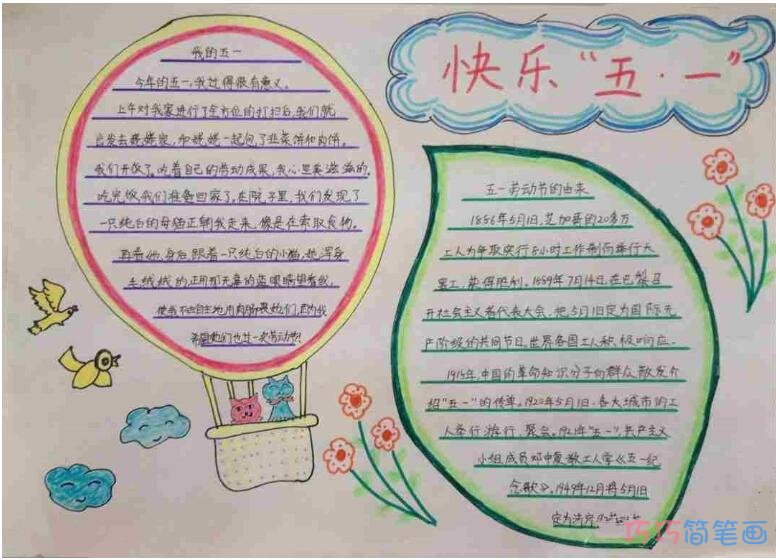 快乐“五·一”
我的五一
今年的五一,我过得很有意义。
上午对我家进行了全方位的打扫后,我们就
出发去姥姥家,和姥姥一起包了韭菜饼和肉饼。
我们开饭了,吃着自己的劳动成果,我心里美滋滋的。
吃完饭我们准备回家了。在院子里,我们发现了
一只纯白的母猫正朝我走来,像是在索取食物。
再看他,身后跟着一只纯白的小猫,她浑身
毛绒绒的正用那无辜的蓝眼睛望着我,
使我不由自主地用肉肠喂她们,因为我
希望她们也过一次劳动节!
五一劳动节的由来
1886年5月1日,芝加哥的20多万
工人为争取实行8小时工作制而举行大
罢工,获得胜利。1889年7月14日,在巴黎召
开社会主义者代表大会,把5月1日定为国际无
产阶级的共同节日,世界各国工人积极响应。
1915年,中国的革命知识分子向群众散发介
绍“五一”的传单。1920年5月1日,各大城市的工
人举行游行、聚会。1921年“五一”,共产主义
小组成员邓中夏教工人学《五一纪
念歌》。1949年12月将5月1日
定为法定
巧巧简笔画